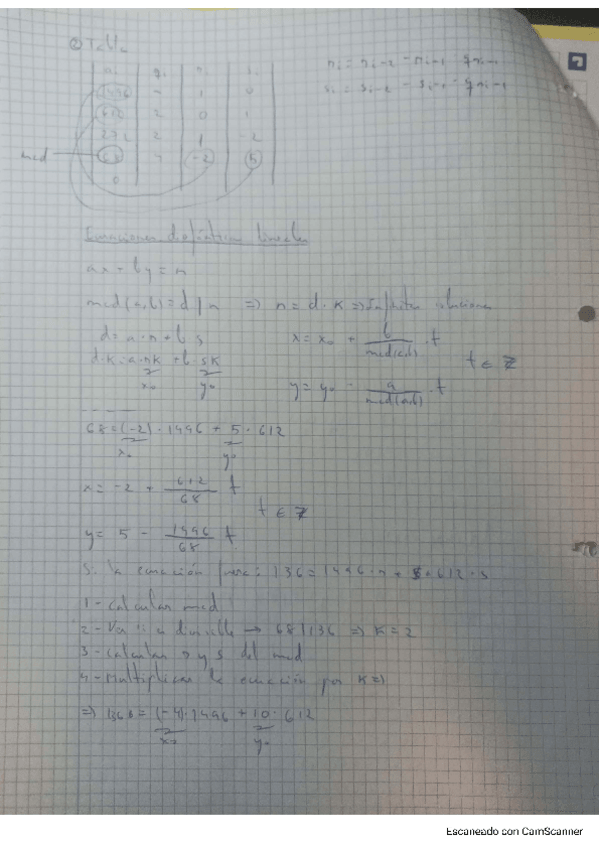 ② Tabla
rᵢ qᵢ nᵢ sᵢ
1496 - 1 0
612 2 0 1
272 2 1 -2
mcd 68 4 -2 5
0
nᵢ = nᵢ₋₂ - nᵢ₋₁ · qᵢ₋₁
sᵢ = sᵢ₋₂ - sᵢ₋₁ · qᵢ₋₁
Ecuaciones diofánticas lineales
ax + by = n
mcd(a,b) = d | n => n = d · k => Infinitas soluciones
d = a · n + b s
d·k = a·nk + b·sk
x₀ y₀
x = x₀ + b/mcd(a,b) · t
y = y₀ - a/mcd(a,b) · t
t ∈ Z
68 = (-2) · 1496 + 5 · 612
x₀ y₀
x = -2 + 612/68 t
y = 5 - 1496/68 t
t ∈ Z
Si la ecuación fuera: 136 = 1496 · n + 612 · s
1 - calcular mcd
2 - Ver si divisible → 68|136 => k = 2
3 - calcular n y s del mcd
4 - multiplicar la ecuación por k =>
=> 136 = (-4) · 1496 + 10 · 612
x₀ y₀
Escaneado con CamScanner